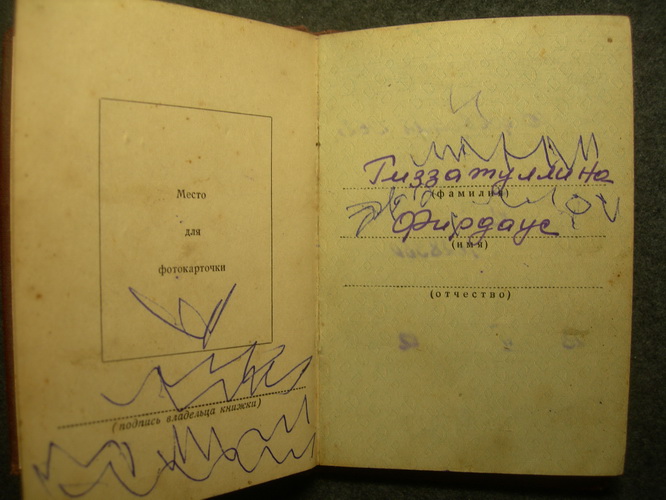 Место
для
фотокарточки
(подпись владельца книжки)
Гиззатуллина
(фамилия)
Фирдаус
(имя)
(отчество)